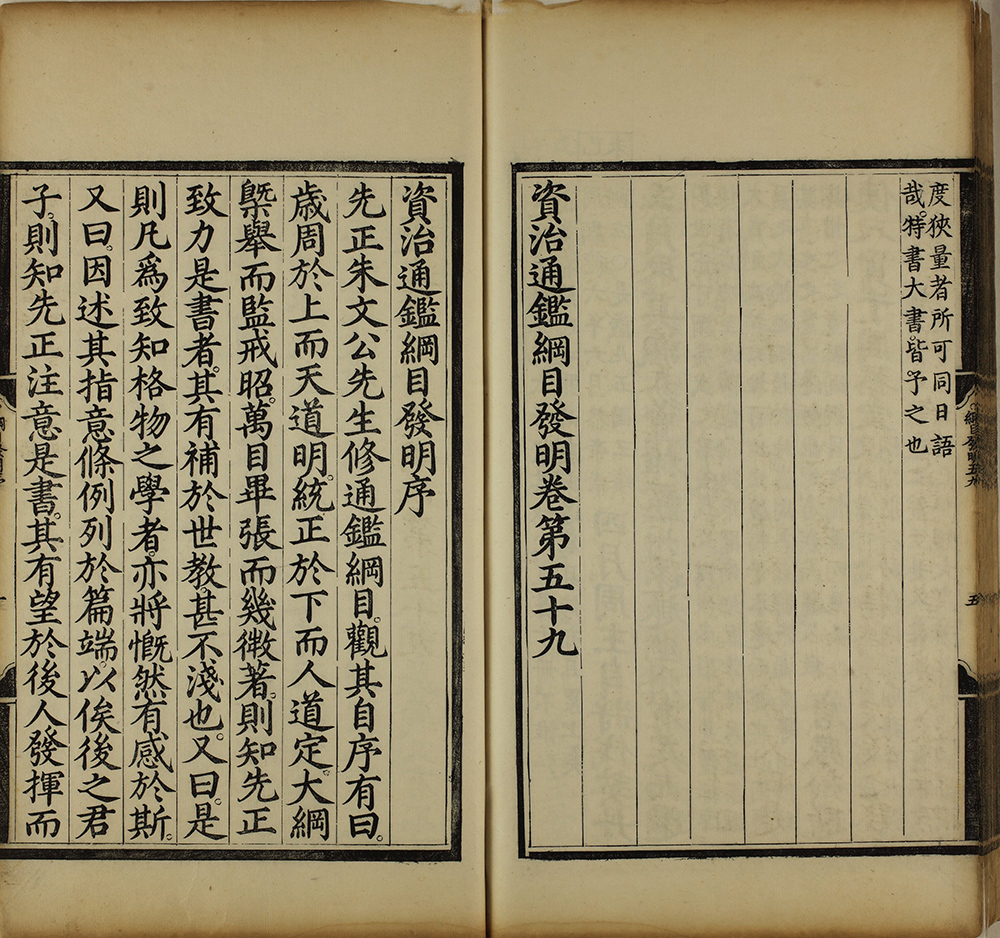 度狹量者所可同日語
哉。特書大書。皆予之也
資治通鑑綱目發明卷第五十九
五
資治通鑑綱目發明序
先正朱文公先生修通鑑綱目。觀其自序有曰。
歲周於上而天道明。統正於下而人道定。大綱
槩舉而監戒昭。萬目畢張而幾微著。則知先正
致力是書者。其有補於世教。甚不淺也。又曰。是
則凡爲致知格物之學者。亦將慨然有感於斯。
又曰。因述其指意條例列於篇端。以俟後之君
子。則知先正注意是書。其有望於後人發揮而